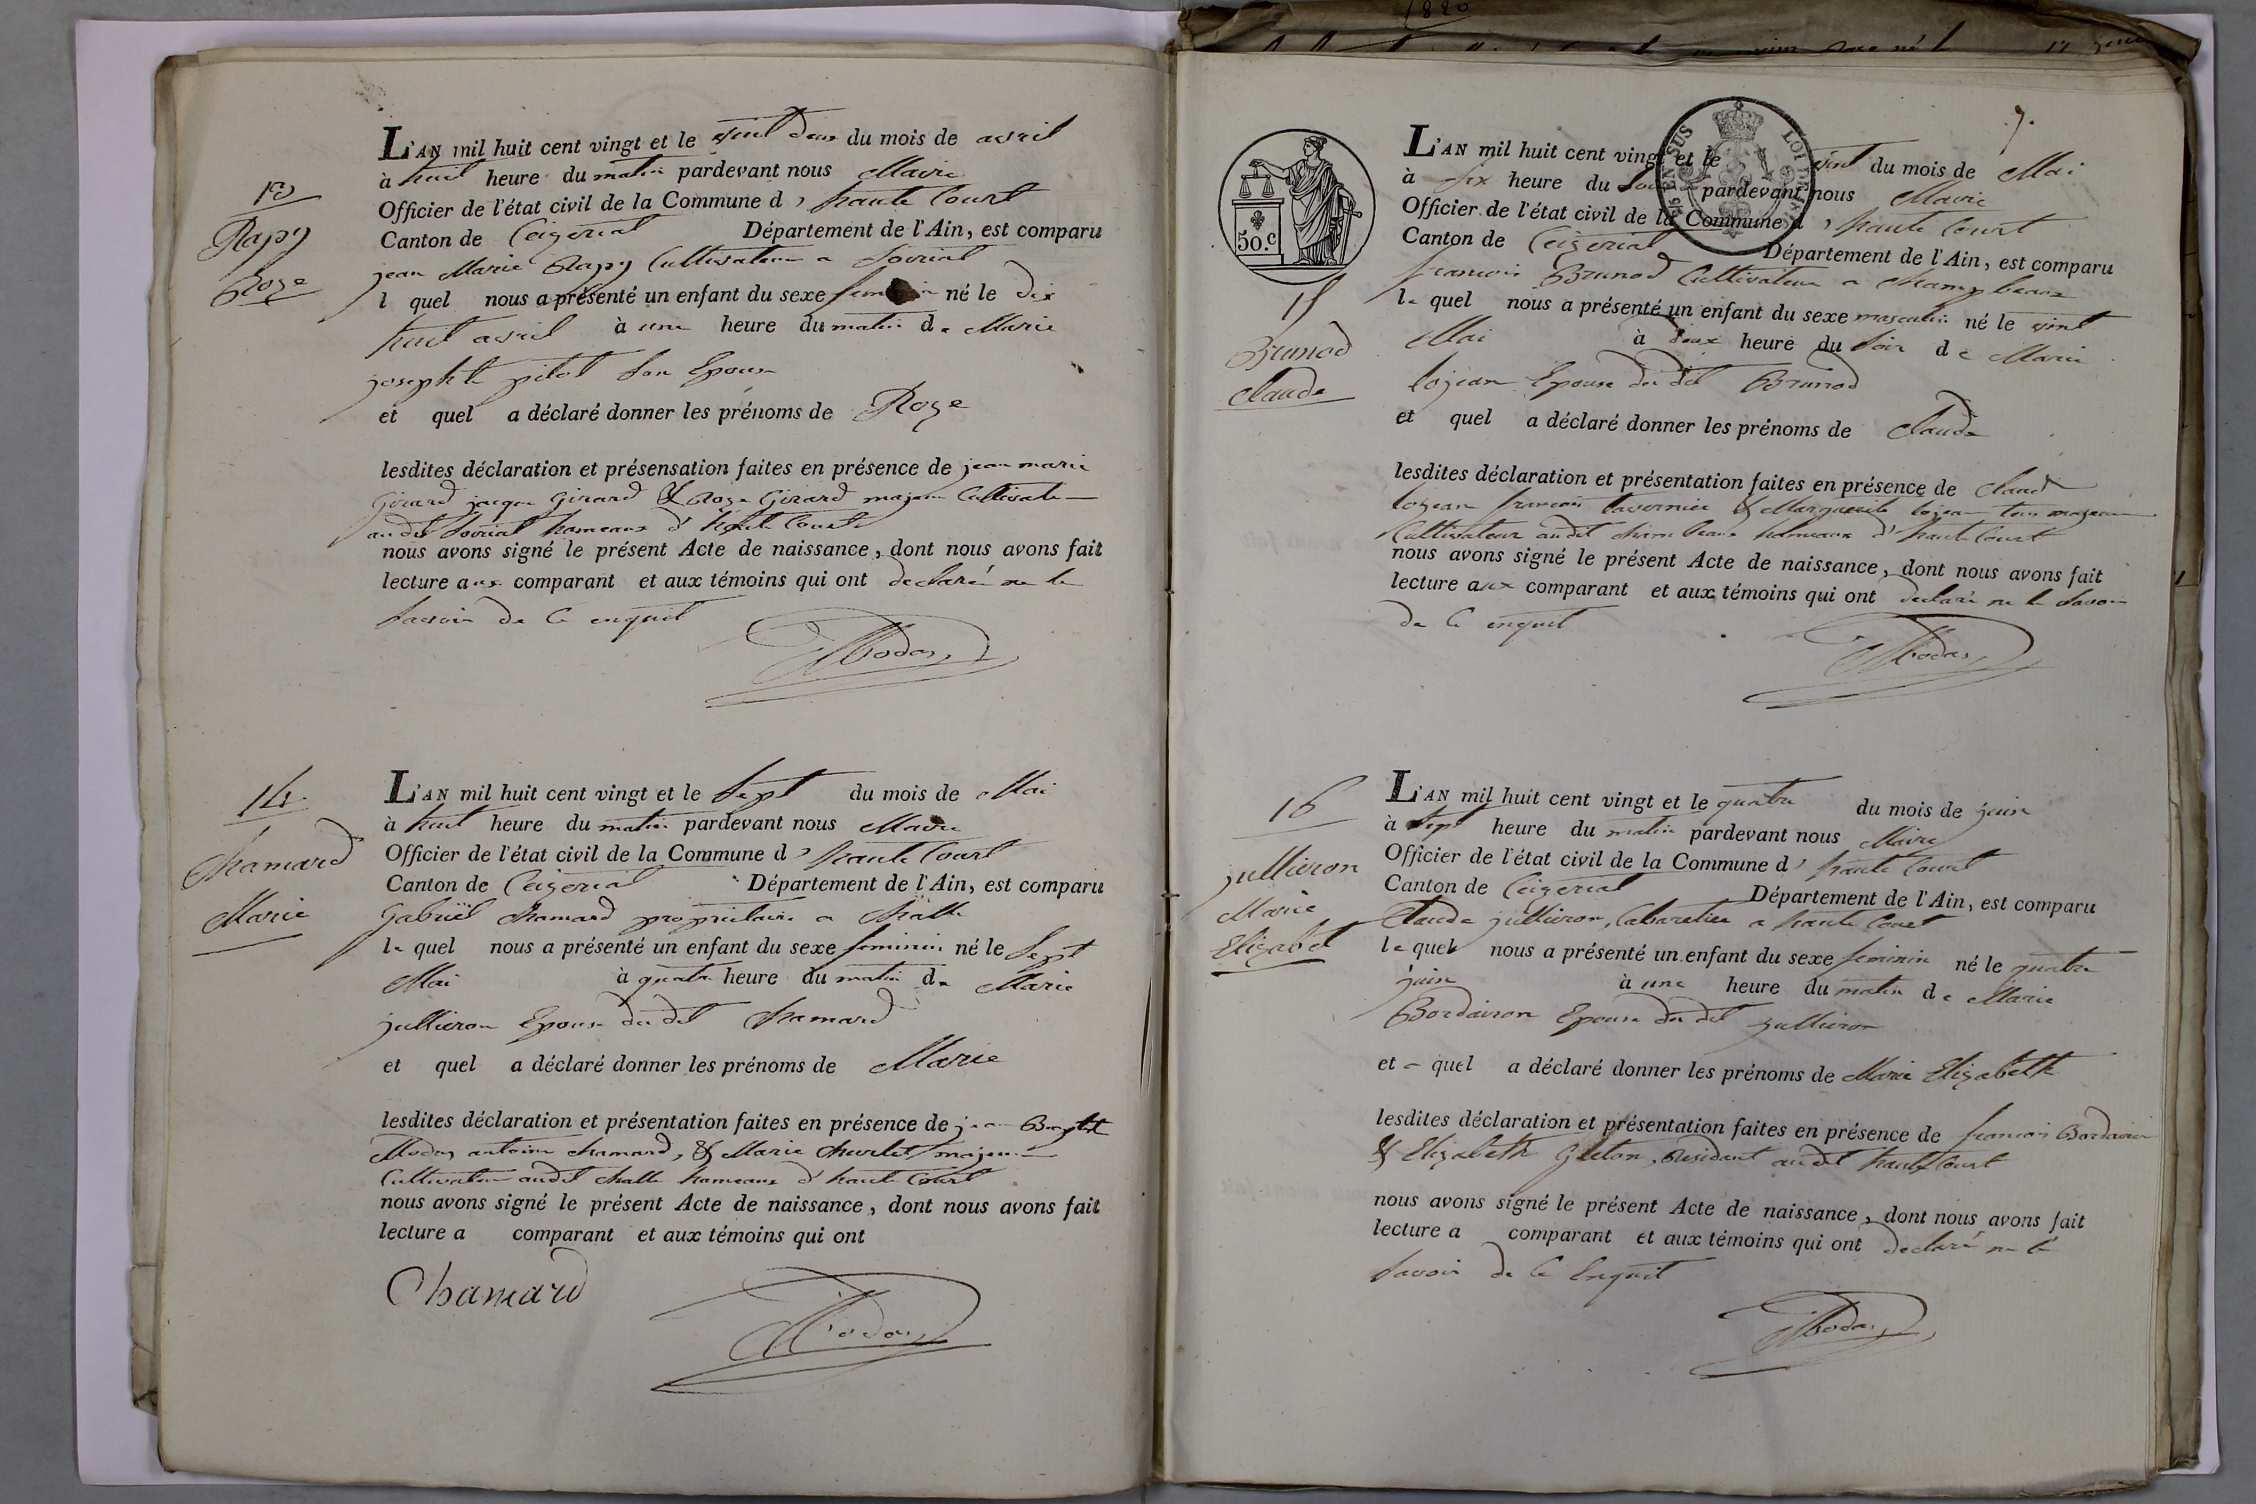 13
Rapy
Roze
L'AN mil huit cent vingt et le vint deux du mois de avril
à huit heure du matin pardevant nous Maire
Officier de l'état civil de la Commune d' haute Court
Canton de Ceizeriat Département de l'Ain, est comparu
jean Marie Rapy Cultivateur a
l quel nous a présenté un enfant du sexe feminin né le dix
huit avril à une heure du matin de Marie
josephte pitot son Epouse
et quel a déclaré donner les prénoms de Roze
lesdites déclaration et présensation faites en présence de jean marie
Girard jacque Girard & Roze Girard majeur Cultivateur
au dit hameaux d' haute Court
nous avons signé le présent Acte de naissance, dont nous avons fait
lecture aux comparant et aux témoins qui ont declaré ne le
savoir de ce enquit
14
Chamard
Marie
L'AN mil huit cent vingt et le Sept du mois de Mai
à huit heure du matin pardevant nous Maire
Officier de l'état civil de la Commune d' haute Court
Canton de Ceizeriat Département de l'Ain, est comparu
Gabriël Chamard propriétaire a Challe
le quel nous a présenté un enfant du sexe feminin né le Sept
Mai à quatre heure du matin de Marie
jullieron Epouse du dit Chamard
et quel a déclaré donner les prénoms de Marie
lesdites déclaration et présentation faites en présence de jean Baptiste
Modas antoine chamard, & Marie Churlet majeur
Cultivateur audit challe hameaux d' haute Court
nous avons signé le présent Acte de naissance, dont nous avons fait
lecture a comparant et aux témoins qui ont
Chamard
1820
7.
50.c
EN SUS
LOI DE
15
Brunod
Claude
L'AN mil huit cent vingt et le vint du mois de Mai
à Six heure du soir pardevant nous Maire
Officier de l'état civil de la Commune d' haute Court
Canton de Ceizeriat Département de l'Ain, est comparu
francois Brunod Cultivateur a Champ beaux
le quel nous a présenté un enfant du sexe masculin né le vint
Mai à deux heure du soir de Marie
lojean Epouse du dit Brunod
et quel a déclaré donner les prénoms de Claude
lesdites déclaration et présentation faites en présence de Claude
lojean francois tavernier & Marguerite lojean tous majeur
Cultivateur audit hameaux d' haute Court
nous avons signé le présent Acte de naissance, dont nous avons fait
lecture aux comparant et aux témoins qui ont declaré ne le savoir
de ce enquit
16
jullieron
Marie
Elizabet
L'AN mil huit cent vingt et le quatre du mois de juin
à sept heure du matin pardevant nous Maire
Officier de l'état civil de la Commune d' haute Court
Canton de Ceizeriat Département de l'Ain, est comparu
Claude jullieron, Cabaretier a haute Court
le quel nous a présenté un enfant du sexe feminin né le quatre
juin à une heure du matin de Marie
Bordairon Epouse du dit jullieron
et quel a déclaré donner les prénoms de Marie Elizabeth
lesdites déclaration et présentation faites en présence de francois Bordairon
& Elizabeth Residant audit haute Court
nous avons signé le présent Acte de naissance, dont nous avons fait
lecture a comparant et aux témoins qui ont declaré ne le
savoir de ce Enquit